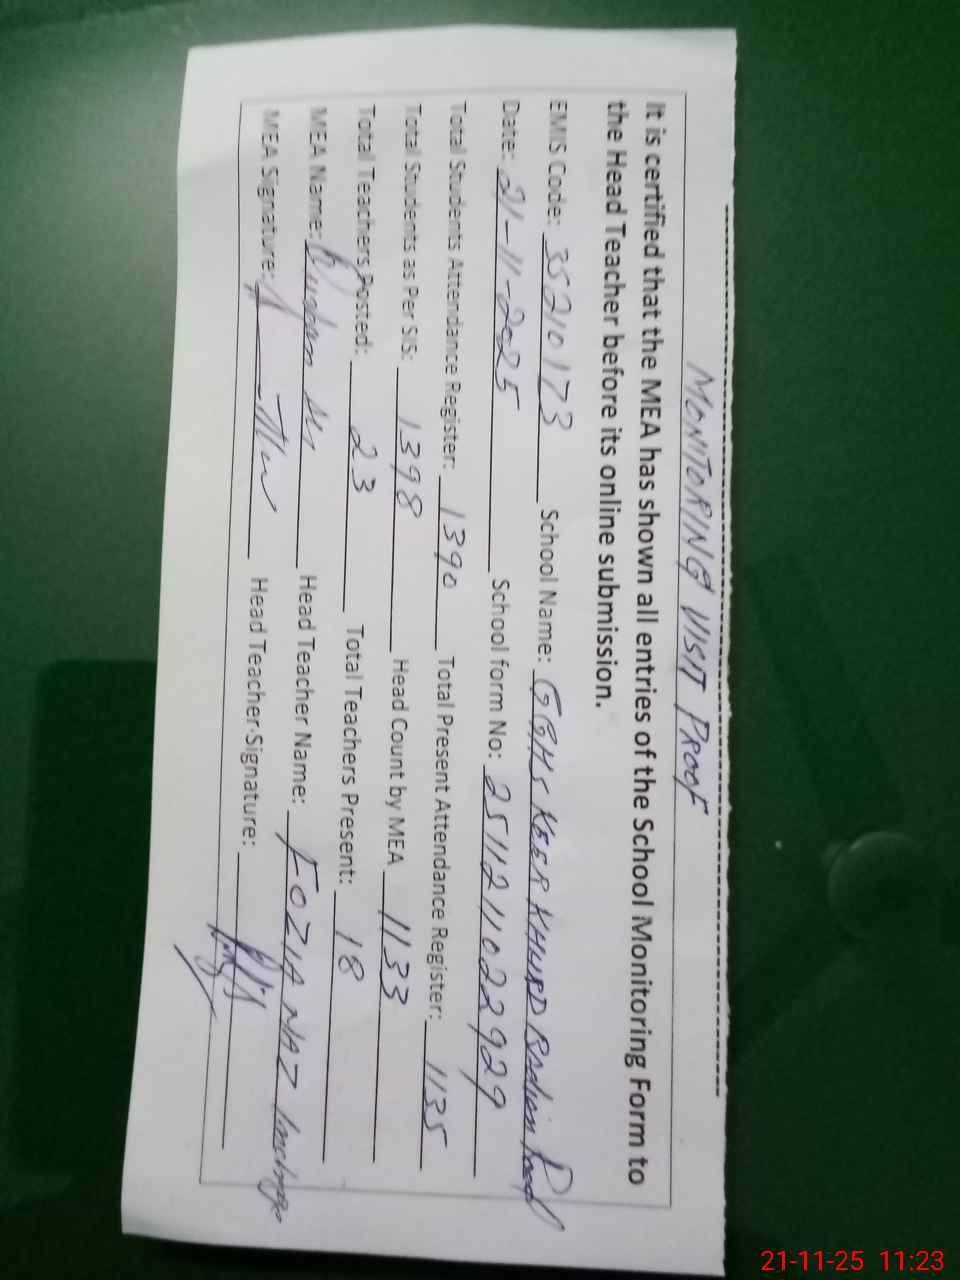 MONITORING VISIT PROOF
It is certified that the MEA has shown all entries of the School Monitoring Form to
the Head Teacher before its online submission.
EMIS Code: 35210173 School Name: GGHS KEER KHURD
Date: 21-11-2025 School form No: 2511211022929
Total Students Attendance Register: 1390 Total Present Attendance Register: 1135
Total Students as Per SIS: 1398 Head Count by MEA 1133
Total Teachers Posted: 23 Total Teachers Present: 18
MEA Name: Head Teacher Name: FOZIA NAZ Incharge
MEA Signature: Head Teacher Signature:
21-11-25 11:23